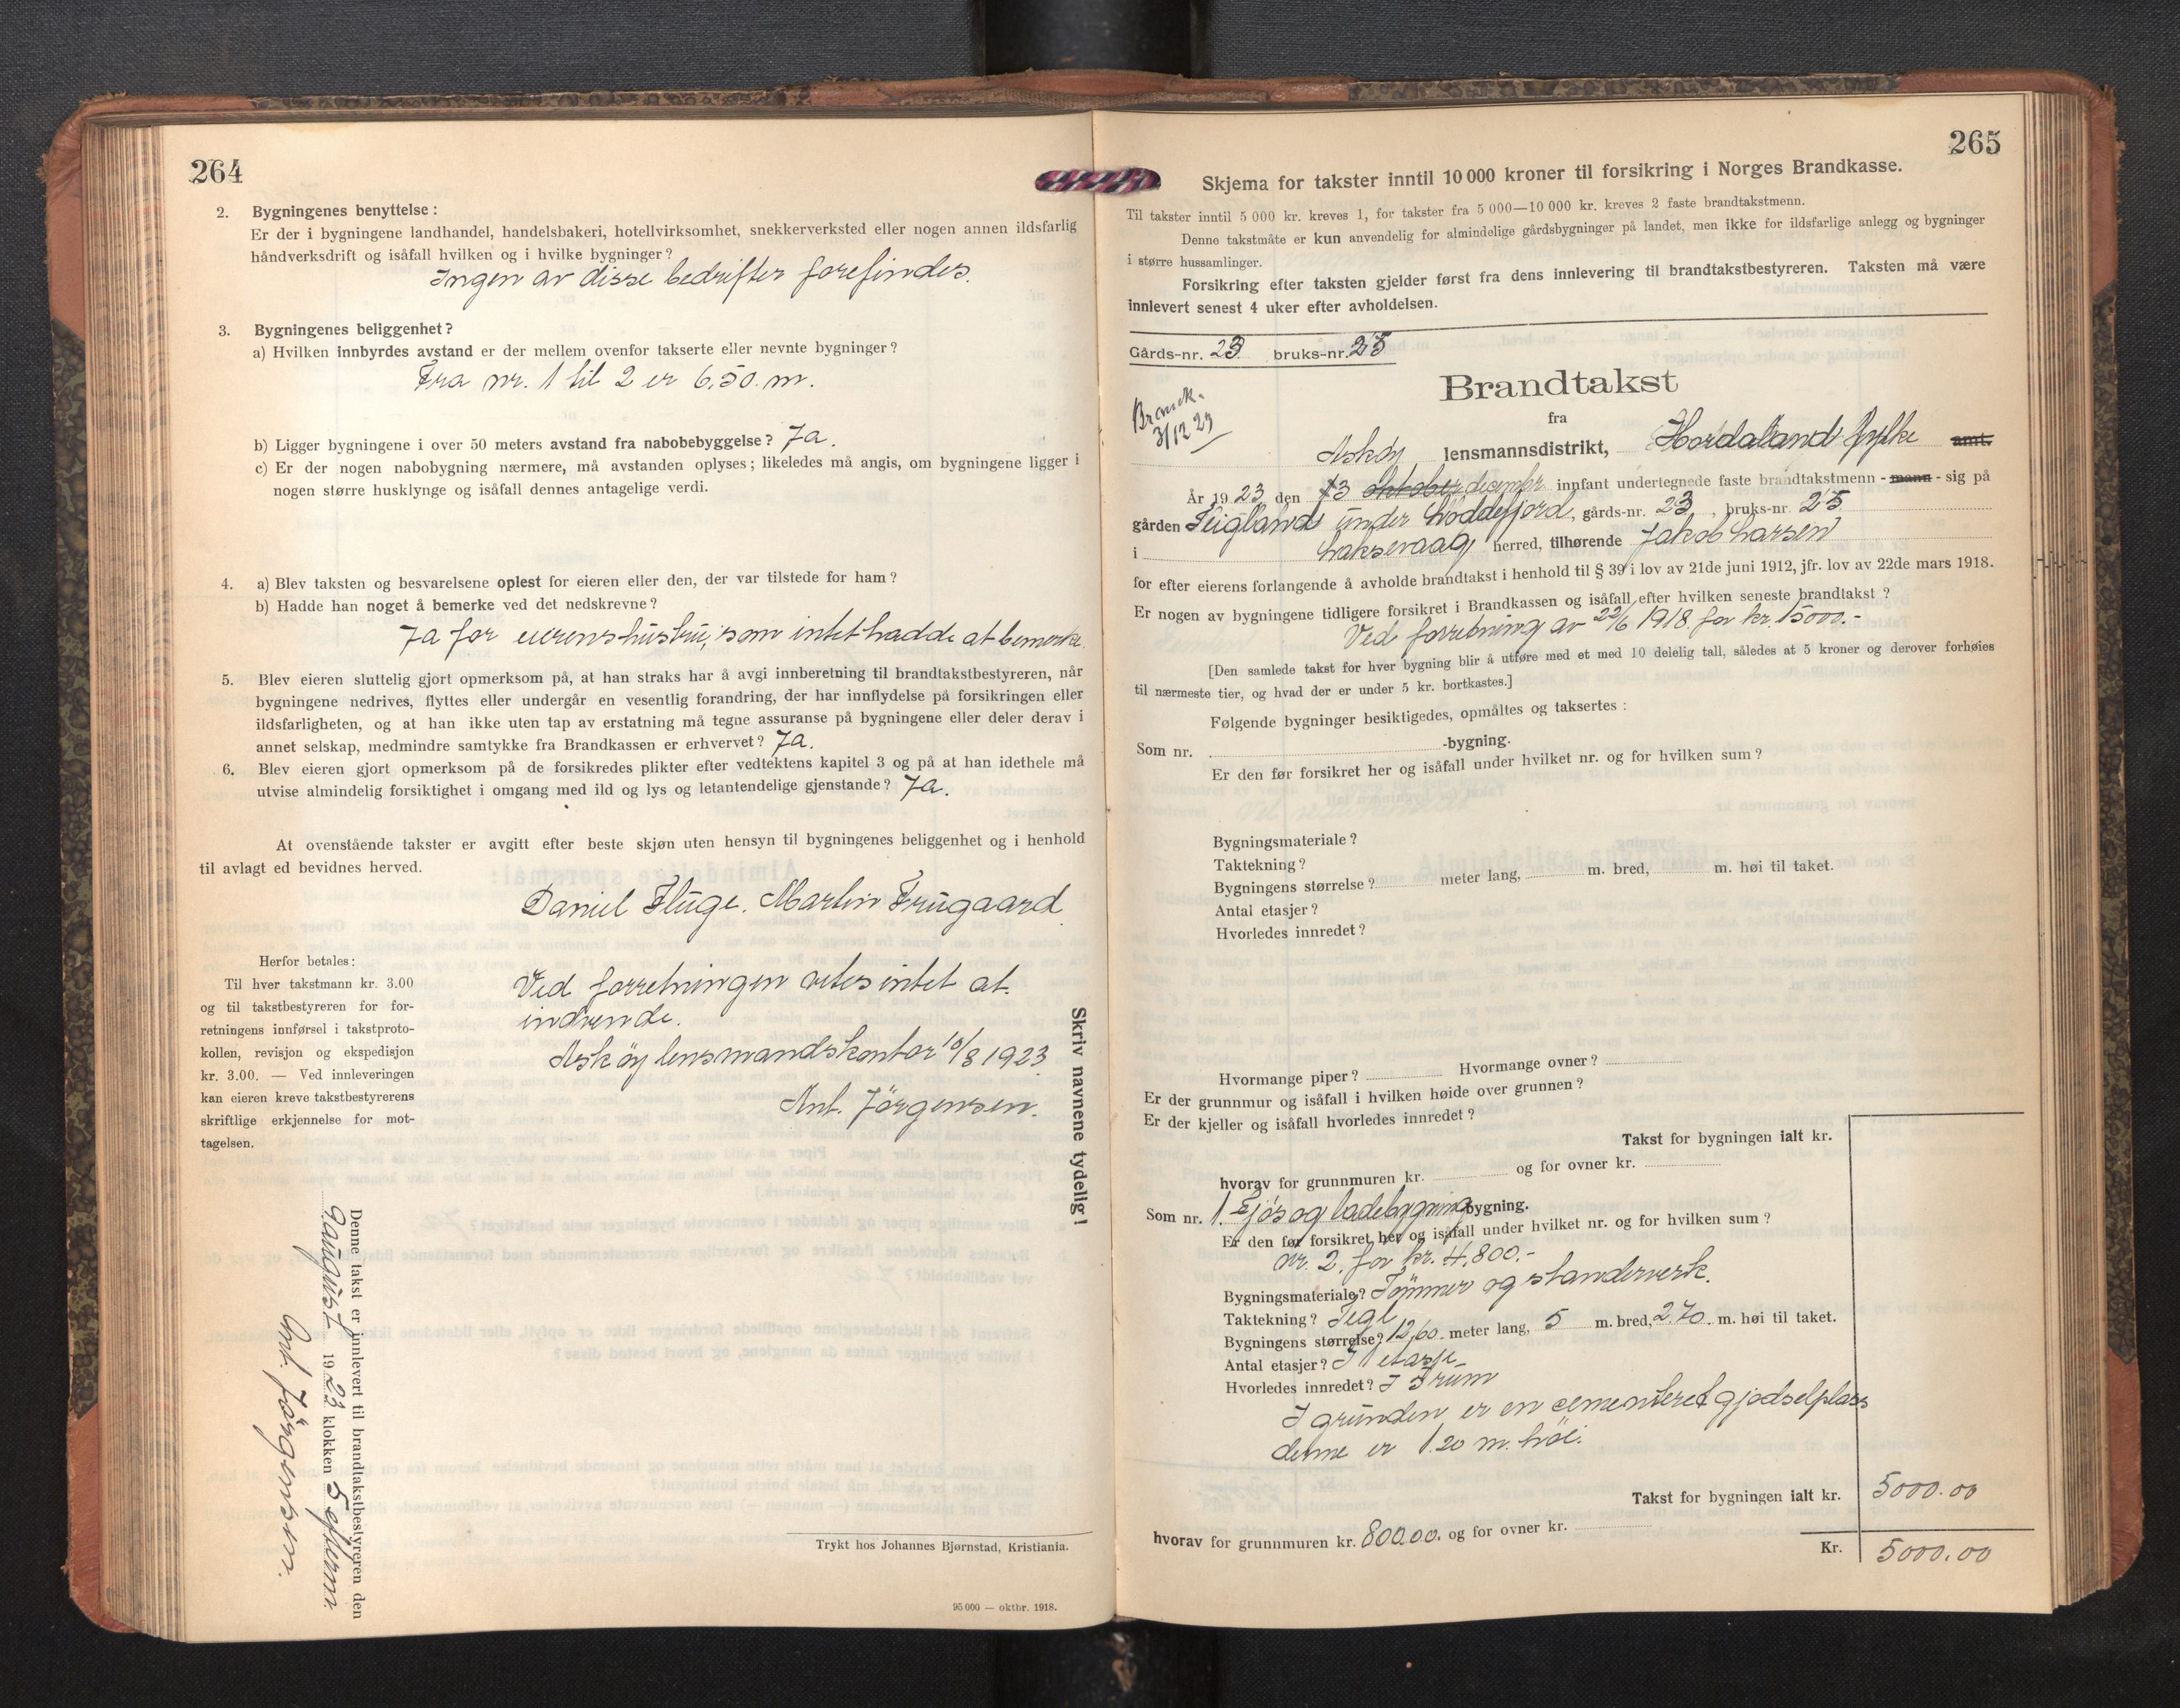 264
2. Bygningenes benyttelse :
Er der i bygningene landhandel, handelsbakeri, hotellvirksomhet, snekkerverksted eller nogen annen ildsfarlig
håndverksdrift og isåfall hvilken og i hvilke bygninger ?
Ingen av disse bedrifter forefindes.
3. Bygningenes beliggenhet ?
a) Hvilken innbyrdes avstand er der mellem ovenfor takserte eller nevnte bygninger ?
Fra nr. 1 til 2 er 6,50. m.
b) Ligger bygningene i over 50 meters avstand fra nabobebyggelse ? Ja.
c) Er der nogen nabobygning nærmere, må avstanden oplyses ; likeledes må angis, om bygningene ligger i
nogen større husklynge og isåfall dennes antagelige verdi.
4. a) Blev taksten og besvarelsene oplest for eieren eller den, der var tilstede for ham ?
b) Hadde han noget å bemerke ved det nedskrevne ?
Ja for eierens hustru, som intet hadde at bemerke.
5. Blev eieren sluttelig gjort opmerksom på, at han straks har å avgi innberetning til brandtakstbestyreren, når
bygningene nedrives, flyttes eller undergår en vesentlig forandring, der har innflydelse på forsikringen eller
ildsfarligheten, og at han ikke uten tap av erstatning må tegne assuranse på bygningene eller deler derav i
annet selskap, medmindre samtykke fra Brandkassen er erhvervet ? Ja.
6. Blev eieren gjort opmerksom på de forsikredes plikter efter vedtektens kapitel 3 og på at han idethele må
utvise almindelig forsiktighet i omgang med ild og lys og letantendelige gjenstande ? Ja.
At ovenstående takster er avgitt efter beste skjøn uten hensyn til bygningenes beliggenhet og i henhold
til avlagt ed bevidnes herved.
Daniel Fluge. Martin Trugaard
Herfor betales :
Til hver takstmann kr. 3.00
og til takstbestyreren for for-
retningens innførsel i takstproto-
kollen, revisjon og ekspedisjon
kr. 3.00. — Ved innleveringen
kan eieren kreve takstbestyrerens
skriftlige erkjennelse for mot-
tagelsen.
Ved forretningen vites intet at
indvende.
Askøy lensmandskontor 10/8 1923
Ant. Jørgensen.
Skriv navnene tydelig !
Denne takst er innlevert til brandtakstbestyreren den
9 august 1923 klokken 5 efterm.
Ant. Jørgensen.
Trykt hos Johannes Bjørnstad, Kristiania.
95 000 — oktbr. 1918.
265
Skjema for takster inntil 10 000 kroner til forsikring i Norges Brandkasse.
Til takster inntil 5 000 kr. kreves 1, for takster fra 5 000—10 000 kr. kreves 2 faste brandtakstmenn.
Denne takstmåte er kun anvendelig for almindelige gårdsbygninger på landet, men ikke for ildsfarlige anlegg og bygninger
i større hussamlinger.
Forsikring efter taksten gjelder først fra dens innlevering til brandtakstbestyreren. Taksten må være
innlevert senest 4 uker efter avholdelsen.
Gårds-nr. 23 bruks-nr. 25
Brandtakst
3/12 23
fra
Askøy lensmannsdistrikt, Hordaland fylke amt.
År 1923 den 13 oktober decembr innfant undertegnede faste brandtakstmenn - mann - sig på
gården Teigland under Loddefjord, gårds-nr. 23, bruks-nr. 25
i Laksevaag herred, tilhørende Jakob Larsen
for efter eierens forlangende å avholde brandtakst i henhold til § 39 i lov av 21de juni 1912, jfr. lov av 22de mars 1918.
Er nogen av bygningene tidligere forsikret i Brandkassen og isåfall efter hvilken seneste brandtakst ?
Ved forretning av 22/6 1918. for kr. 15000.-
[Den samlede takst for hver bygning blir å utføre med et med 10 delelig tall, således at 5 kroner og derover forhøies
til nærmeste tier, og hvad der er under 5 kr. bortkastes.]
Følgende bygninger besiktigedes, opmåltes og taksertes :
Som nr. -bygning.
Er den før forsikret her og isåfall under hvilket nr. og for hvilken sum ?
Bygningsmateriale ?
Taktekning ?
Bygningens størrelse ? meter lang, m. bred, m. høi til taket.
Antal etasjer ?
Hvorledes innredet ?
Hvormange piper ? Hvormange ovner ?
Er der grunnmur og isåfall i hvilken høide over grunnen ?
Er der kjeller og isåfall hvorledes innredet ?
Takst for bygningen ialt kr.
hvorav for grunnmuren kr. og for ovner kr.
Som nr. 1. Fjøs og ladebygning bygning.
Er den før forsikret her og isåfall under hvilket nr. og for hvilken sum ?
nr. 2. for kr. 4,800.-
Bygningsmateriale ? Tømmer og standerverk.
Taktekning ? Tegl
Bygningens størrelse ? 12,60. meter lang, 5 m. bred, 2.70. m. høi til taket.
Antal etasjer ? I 1 etasje
Hvorledes innredet ? I 3 rum
I grunden er en cementeret gjødselplass
denne er 1.20 m. høi.
Takst for bygningen ialt kr. 5000.00
hvorav for grunnmuren kr. 800.00. og for ovner kr.
Kr. 5000.00